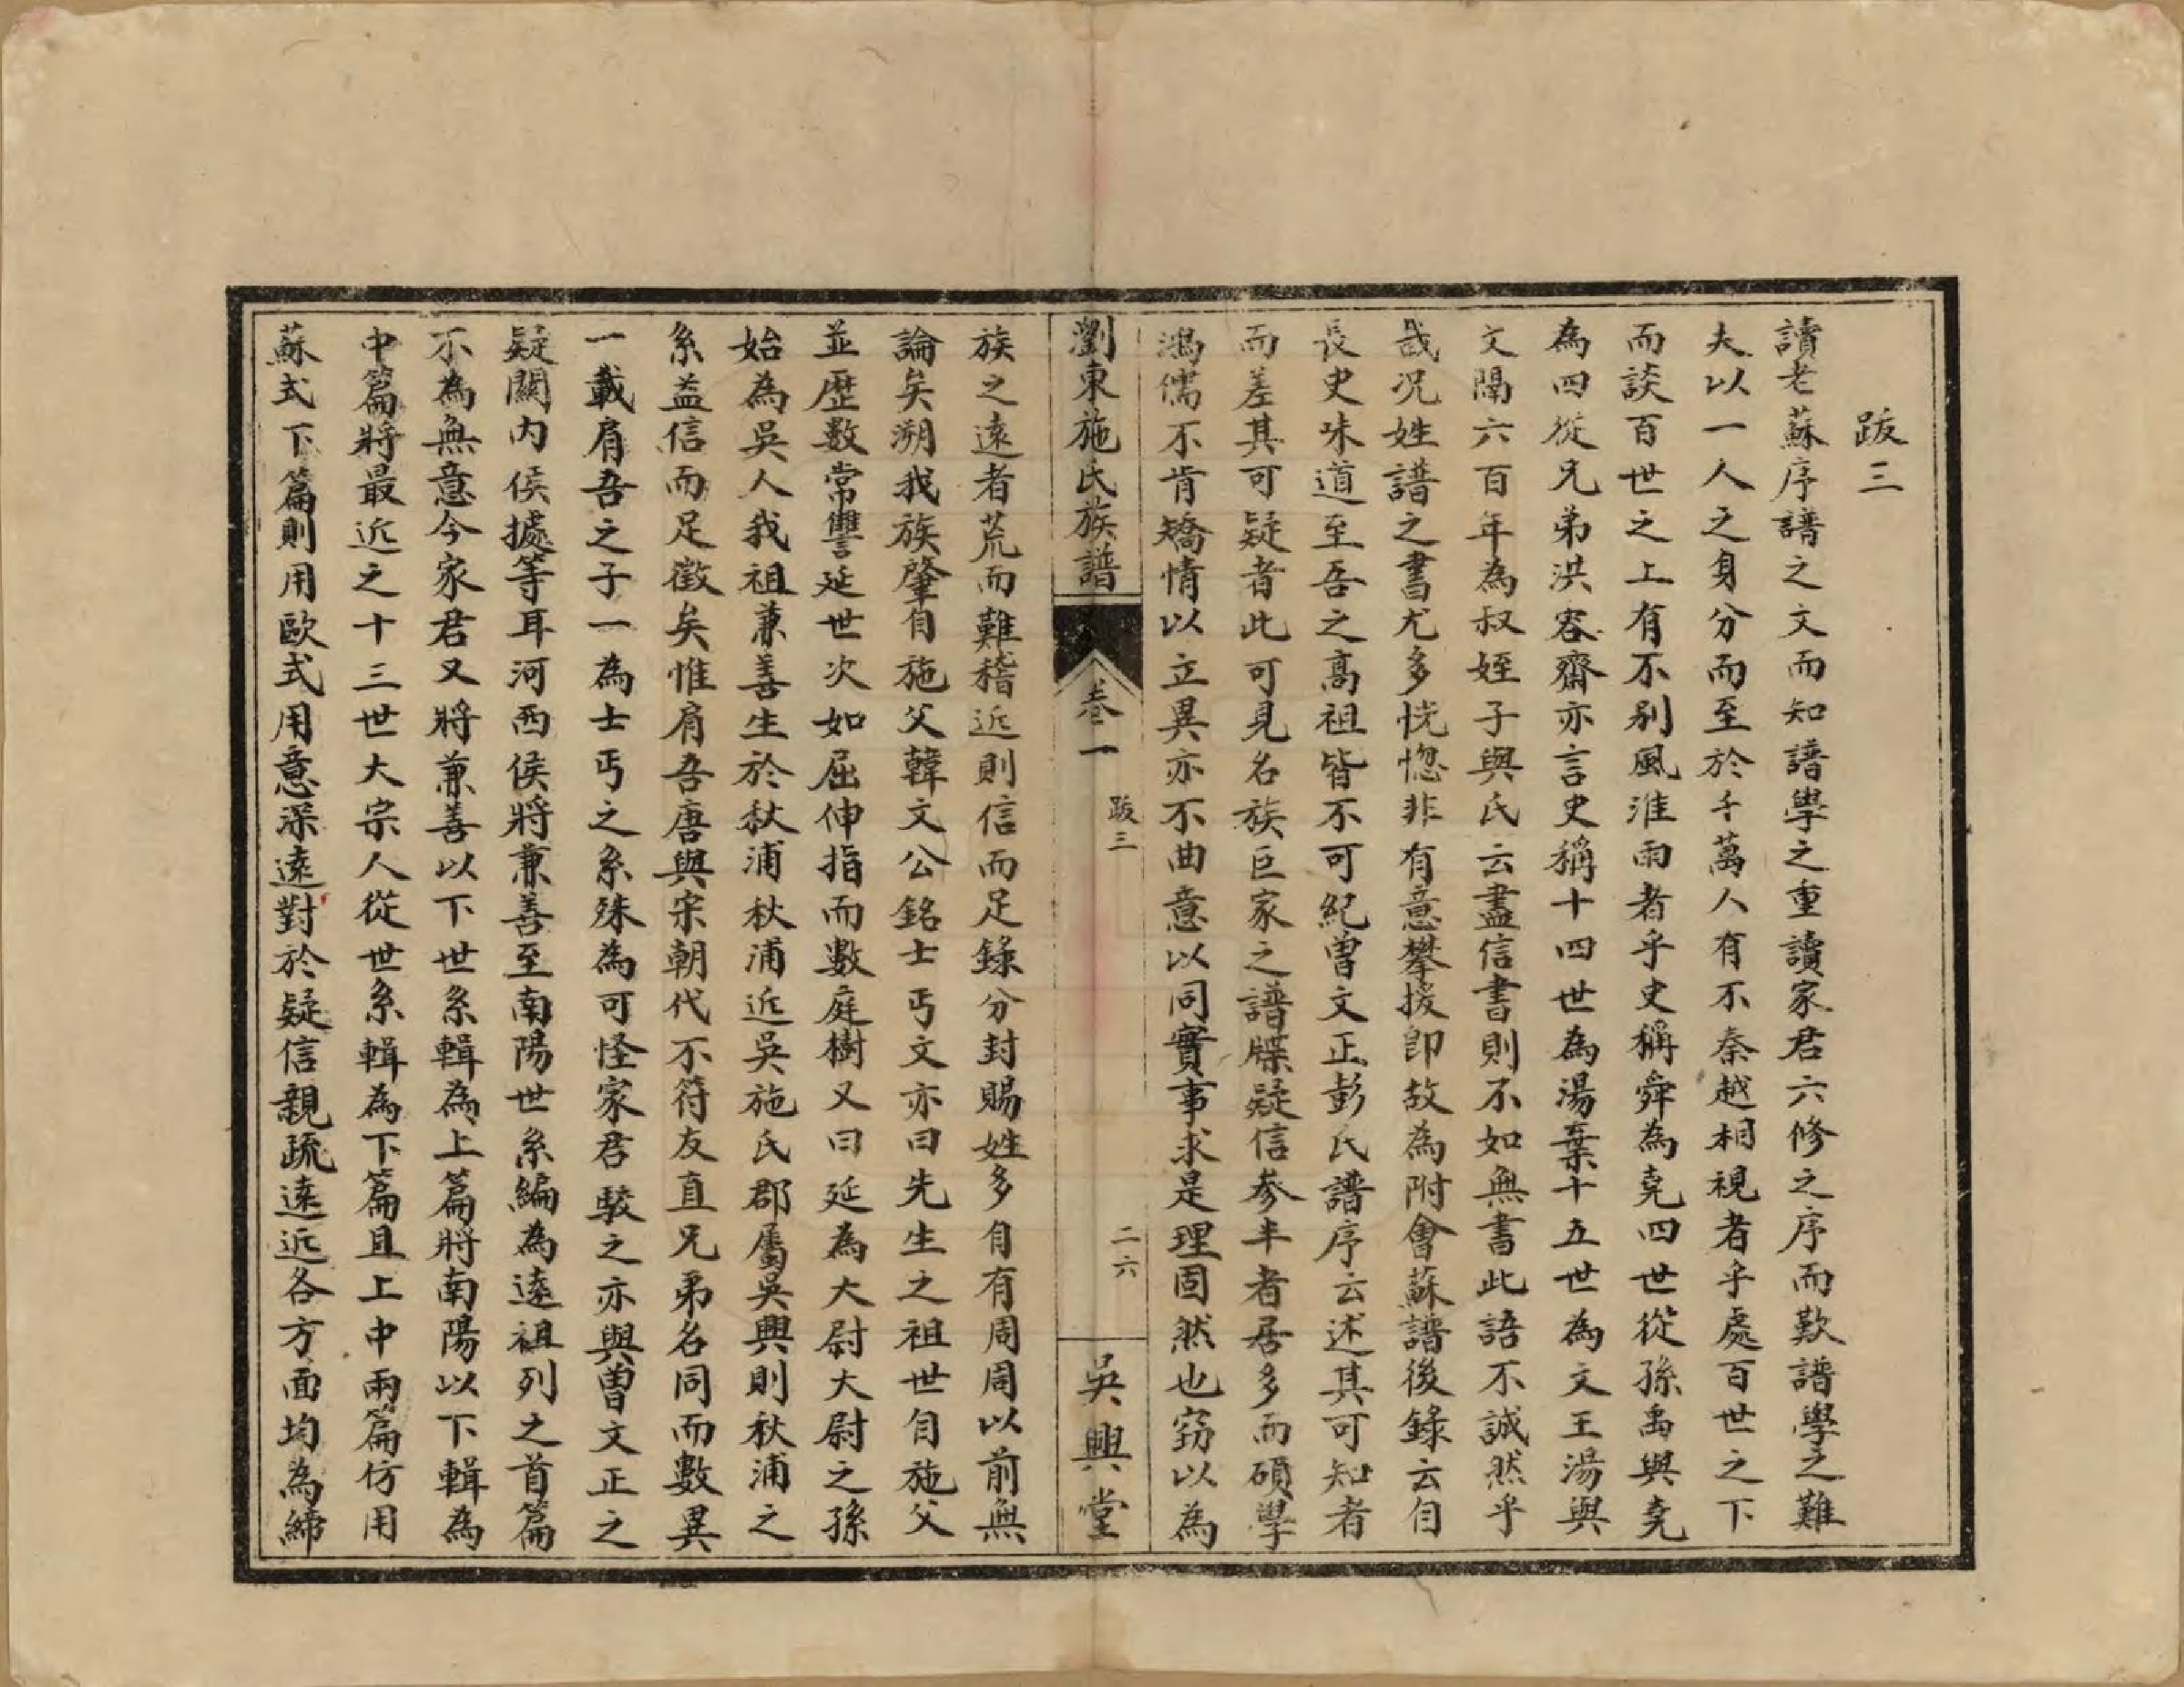 跋三
讀老蘇序譜之文而知譜學之重讀家君六修之序而歎譜學之難
夫以一人之身分而至於千萬人有不秦越相視者乎處百世之下
而談百世之上有不别風淮雨者乎史稱舜為堯四世從孫禹與堯
為四從兄弟洪容齋亦言史稱十四世為湯棄十五世為文王湯與
文隔六百年為叔姪子與氏云盡信書則不如無書此語不誠然乎
哉况姓譜之書尤多恍惚非有意攀援即故為附會蘇譜後錄云自
長史味道至吾之高祖皆不可紀曾文正彭氏譜序云述其可知者
而差其可疑者此可見名族巨家之譜牒疑信參半者居多而碩學
鴻儒不肯矯情以立異亦不曲意以同實事求是理固然也窈以為
瀏東施氏族譜
卷一
跋三
二六
吳興堂
族之遠者荒而難稽近則信而足錄分封賜姓多自有周周以前無
論矣溯我族肇自施父韓文公銘士丐文亦曰先生之祖世自施父
並歷數常讐延世次如屈伸指而數庭樹又曰延為大尉大尉之孫
始為吳人我祖兼善生於秋浦秋浦近吳施氏郡屬吳興則秋浦之
系益信而足徵矣惟肩吾唐與宋朝代不符友直兄弟名同而數異
一載肩吾之子一為士丐之系殊為可怪家君駁之亦與曾文正之
疑關内侯據等耳河西侯將兼善至南陽世系編為遠祖列之首篇
不為無意今家君又將兼善以下世系輯為上篇將南陽以下輯為
中篇將最近之十三世大宗人從世系輯為下篇且上中兩篇仿用
蘇式下篇則用歐式用意深遠對於疑信親疏遠近各方面均為締